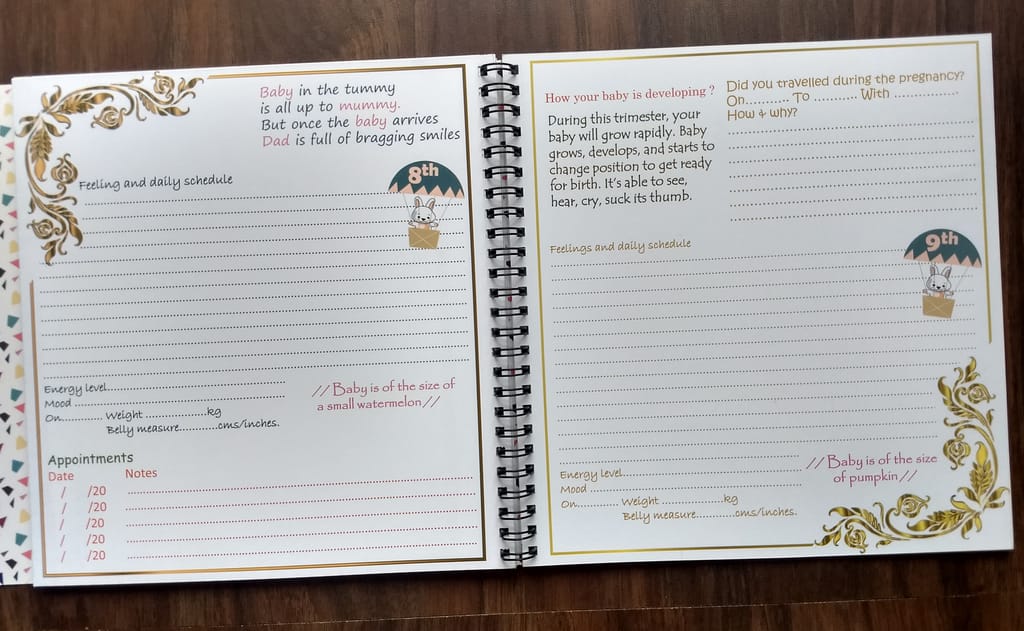 Baby in the tummy
is all up to mummy.
But once the baby arrives
Dad is full of bragging smiles
8th
Feeling and daily schedule
Energy level
Mood
On........... Weight ..................kg
Belly measure...........cms/inches.
// Baby is of the size of
a small watermelon //
Appointments
Date Notes
/ /20
/ /20
/ /20
/ /20
/ /20
How your baby is developing ?
During this trimester, your
baby will grow rapidly. Baby
grows, develops, and starts to
change position to get ready
for birth. It's able to see,
hear, cry, suck its thumb.
Did you travelled during the pregnancy?
On........... To ........... With ................
How & why?
9th
Feelings and daily schedule
Energy level
Mood
On........... Weight ..................kg
Belly measure...........cms/inches.
// Baby is of the size
of pumpkin //